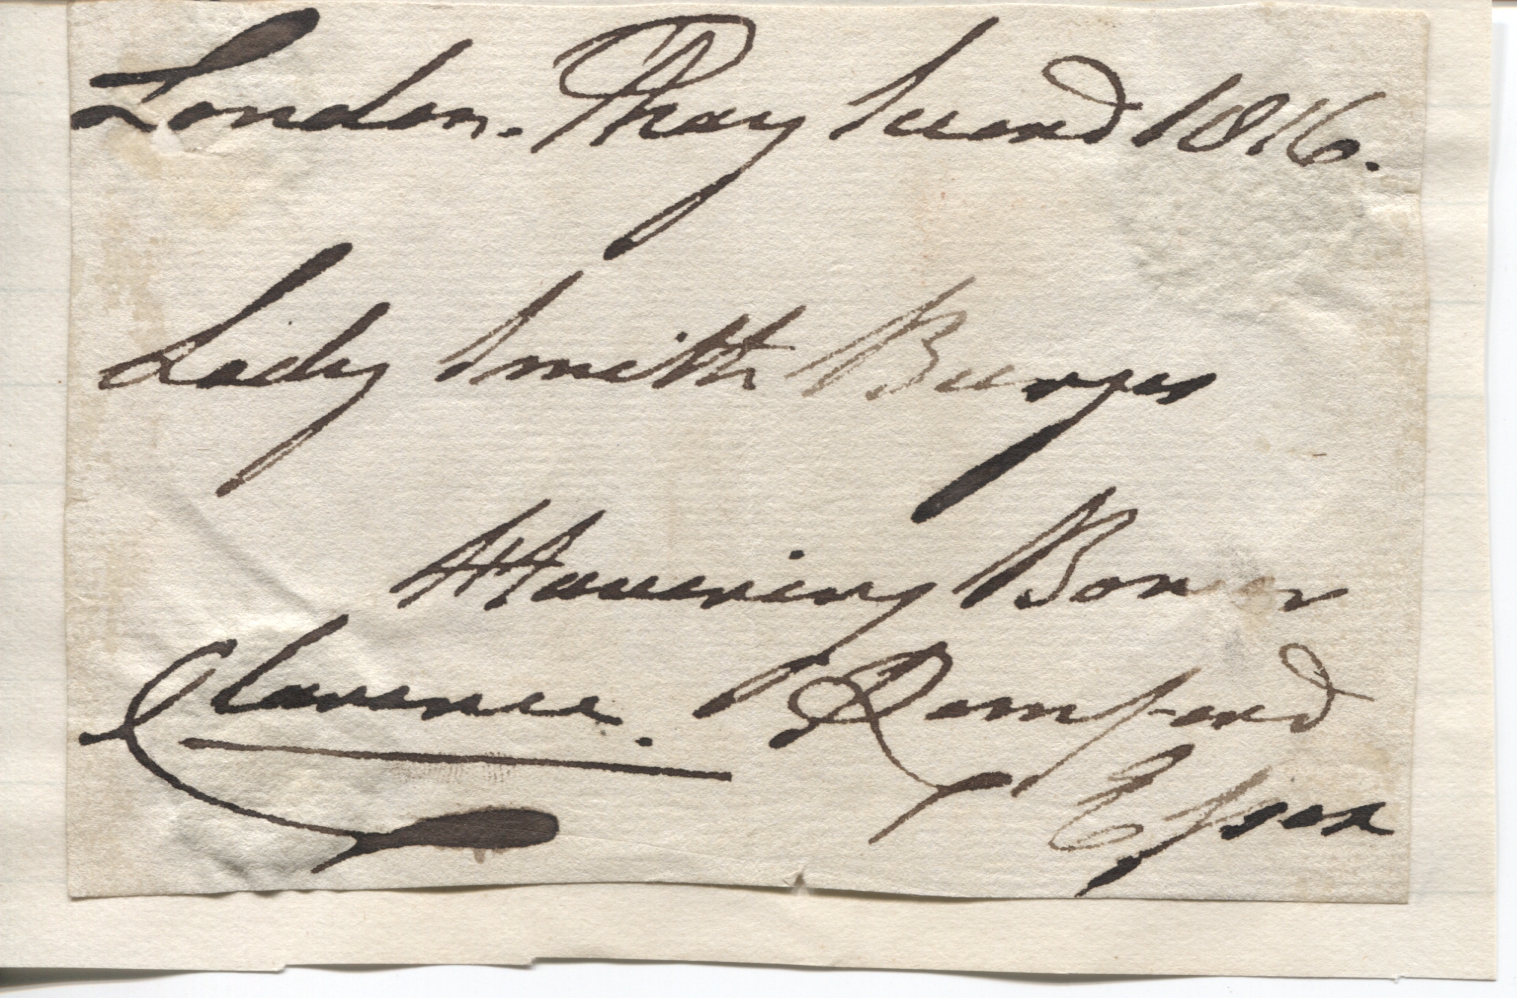 London. May second 1816.
Lady Smith Burges
Havering Bower
Clarence. Romford
Essex